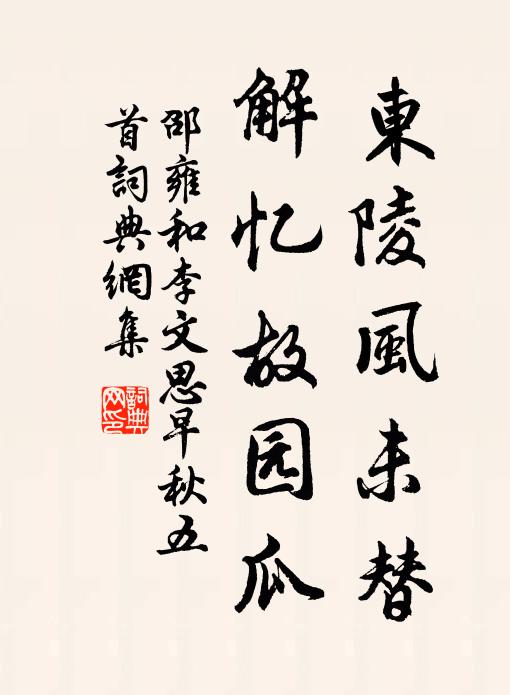 東陵風未替
解忆故园瓜
邵雍和李文思早秋五
首詞典網集
詞典
网印